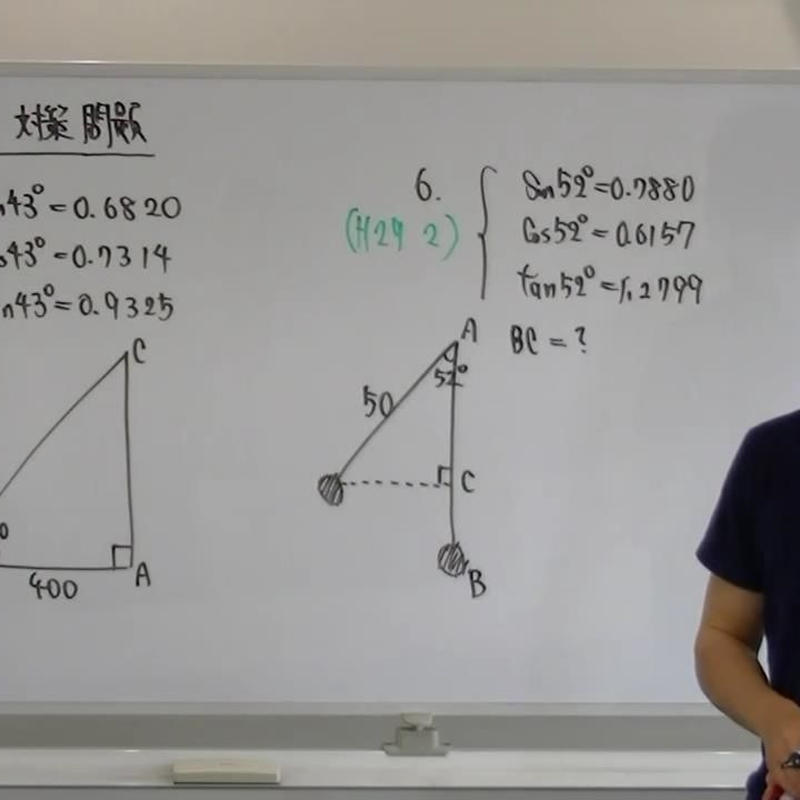 対策問題
n43°=0.6820
s43°=0.7314
n43°=0.9325
C
400
A
6.
(H24 2)
Sin52°=0.7880
Cos52°=0.6157
tan52°=1.2799
BC=?
A
52°
50
C
B